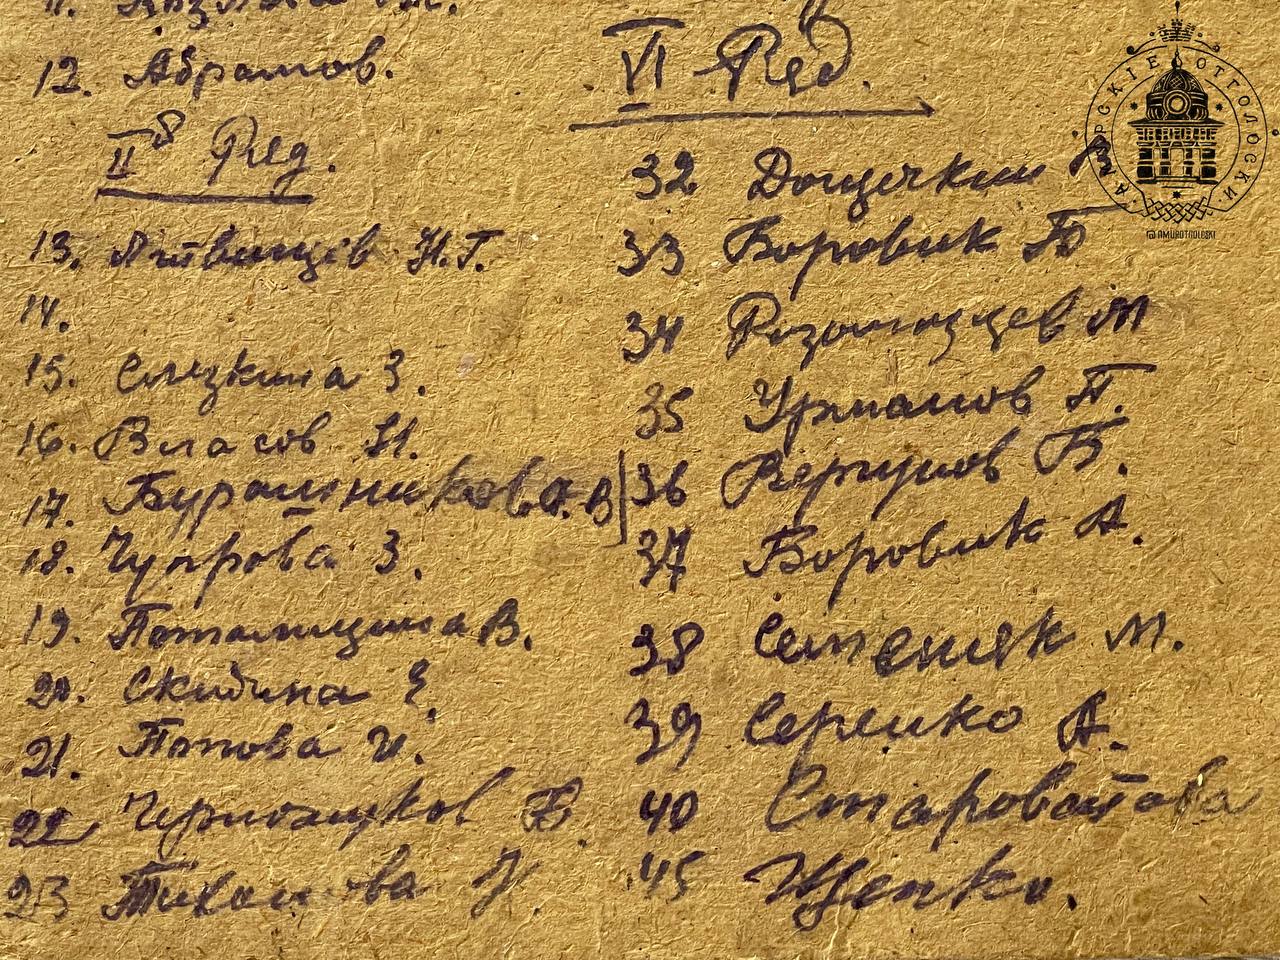 12. Абрамов.
II й Ряд.
13. Литвинцев Н.Г.
14.
15. Слезкина З.
16. Власов И.
17. Бурашникова А. В
18. Чупрова З.
19. Потамицина В.
20. Скидина Е.
21. Попова И.
22
23 Тиханова
VI й Ряд.
32 Дощечкин
33 Боровик Б
34 М
35 Урманов П.
36 Вергунов Б.
37 Боровик А.
38 Семеняк М.
39 Серенко А.
40 Староватова
45 Щепко.
АМУРСКІЕ ОТГОЛОСКИ
@AMUROTGOLOSKI